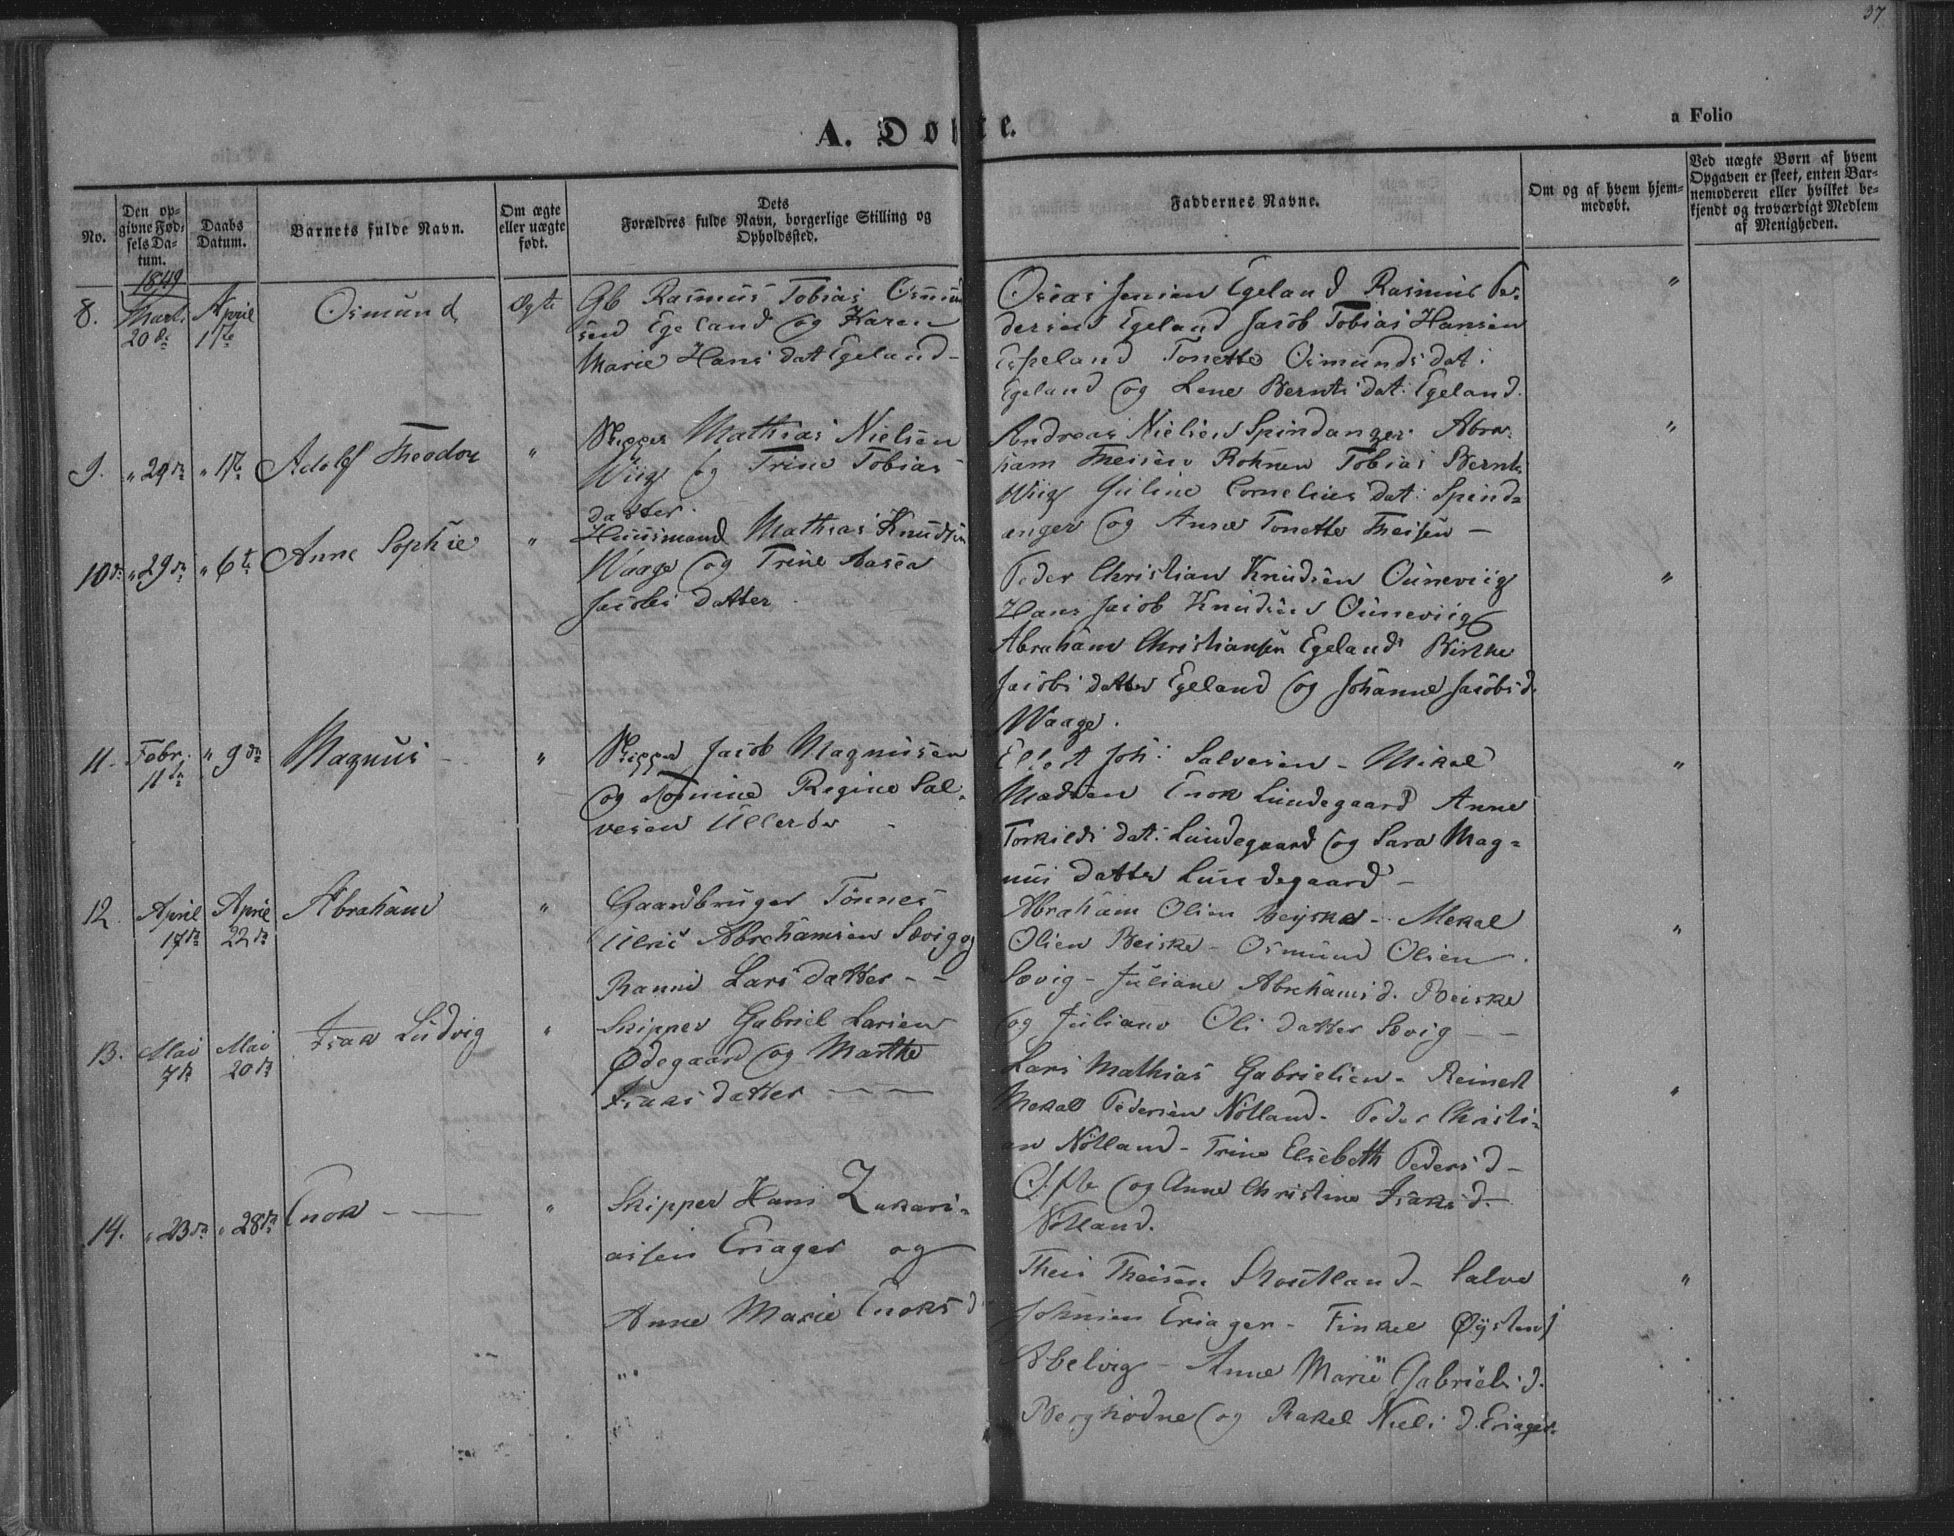 37
a Folio
A. Døbte.
No.
Den op-
givne Fød-
sels Da-
tum.
Daabs
Datum.
Barnets fulde Navn.
Om ægte
eller uægte
født.
Dets
Forældres fulde Navn, borgerlige Stilling og
Opholdssted.
Faddernes Navne.
Om og af hvem hjem-
medøbt.
Ved uægte Børn af hvem
Opgaven er skeet, enten Bar-
nemoderen eller hvilket be-
kjendt og troværdigt Medlem
af Menigheden.
1849
8. Marts 20de April 1ste Osmund Ægte
Gb Rasmus Tobias Osmun
sen Egeland og Karen
Marie Hans dat Egeland -
Osias Jensen Egeland Rasmus Pe-
dersen Egeland Jacob Tobias Hansen
Espeland Tonette Osmunds dat:
Egeland og Lene Bernts dat: Egeland.
"
9. " 29de " 1ste Adolf Theodor "
Skipper Mathias Nielsen
Wiig og Trine Tobias
datter.
Andreas Nielsen Spindanger Abra-
ham Theisen Tobias Bernts
Wiig Guline Cornelius dat: Spind-
anger og Anne Tonette Theisen -
"
10de " 29de " 6te Anne Sophie "
Huusmand Mathias Knudsen
Waage og Trine Aasea
Jacobs datter
Peder Christian Knudsen Ouneviig
Hans Jacob Knudsen Ouneviig
Abraham Christiansen Egeland Birthe
Jacobs datter Egeland og Johanne Jacobs d.
Waage.
"
11. Febr. 11te " 9de Magnus - "
Skipper Jacob Magnusen
og Tomine Regine Sal-
vesen Ullerøe
Ellert Joh: Salvesen - Mikal
Madsen Enok Lundegaard Anne
Torkilds dat: Lundegaard og Sara Mag-
nus datter Lundegaard -
"
12. April 17de April 22de Abraham "
Gaardbruger Tönnes
Ulric Abrahamsen Sævig og
Ranni Lars datter - -
Abraham Olsen Beiske - Mekal
Olsen Beiske - Osmund Olsen
Sævig - Juliane Abrahams d. Beiske
og Juliane Ols datter Sævig - -
"
13. Mai 7de Mai 20de Isak Ludvig "
Skipper Gabriel Larsen
Ødegaard og Marthe
Isaks datter - -
Lars Mathias Gabrielsen - Reinert
Mekal Pedersen Nötland - Peder Christi-
an Nötland - Trine Elsebeth Peders d -
og Anne Christine Isaks d -
Nötland.
"
14. " 23de " 28de Enok - "
Skipper Hans Zakari-
assen Eriager og
Anne Marie Enoks d
Theis Theisen Skoutland - Salve
Johnsen Eriager - Finkel Øystens
Abelvig - Anne Marie Gabriels d.
Berghodne og Rakel Niels d. Eriager.
"